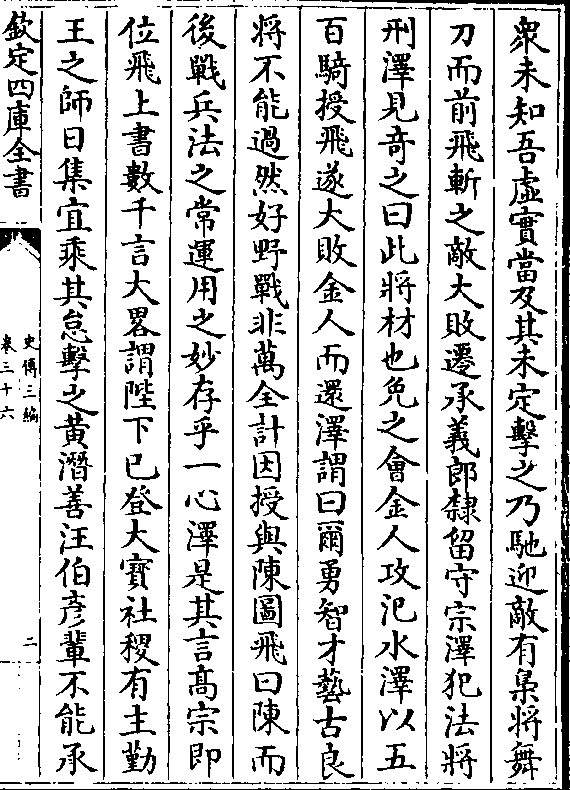 衆未知吾虛實當及其未定擊之乃馳迎敵有梟將舞
刀而前飛斬之敵大敗遷承義郎隸留守宗澤犯法將
刑澤見竒之曰此將材也免之會金人攻汜水澤以五
百騎授飛遂大敗金人而還澤謂曰爾勇智才藝古良
將不能過然好野戰非萬全計因授與陳圖飛曰陳而
後戰兵法之常運用之妙存乎一心澤是其言髙宗即
位飛上書數千言大畧謂陛下已登大寳社稷有主勤
王之師日集宜乘其怠擊之黄潛善汪伯彦輩不能承
欽定四庫全書
史傳三編
卷三十六
二